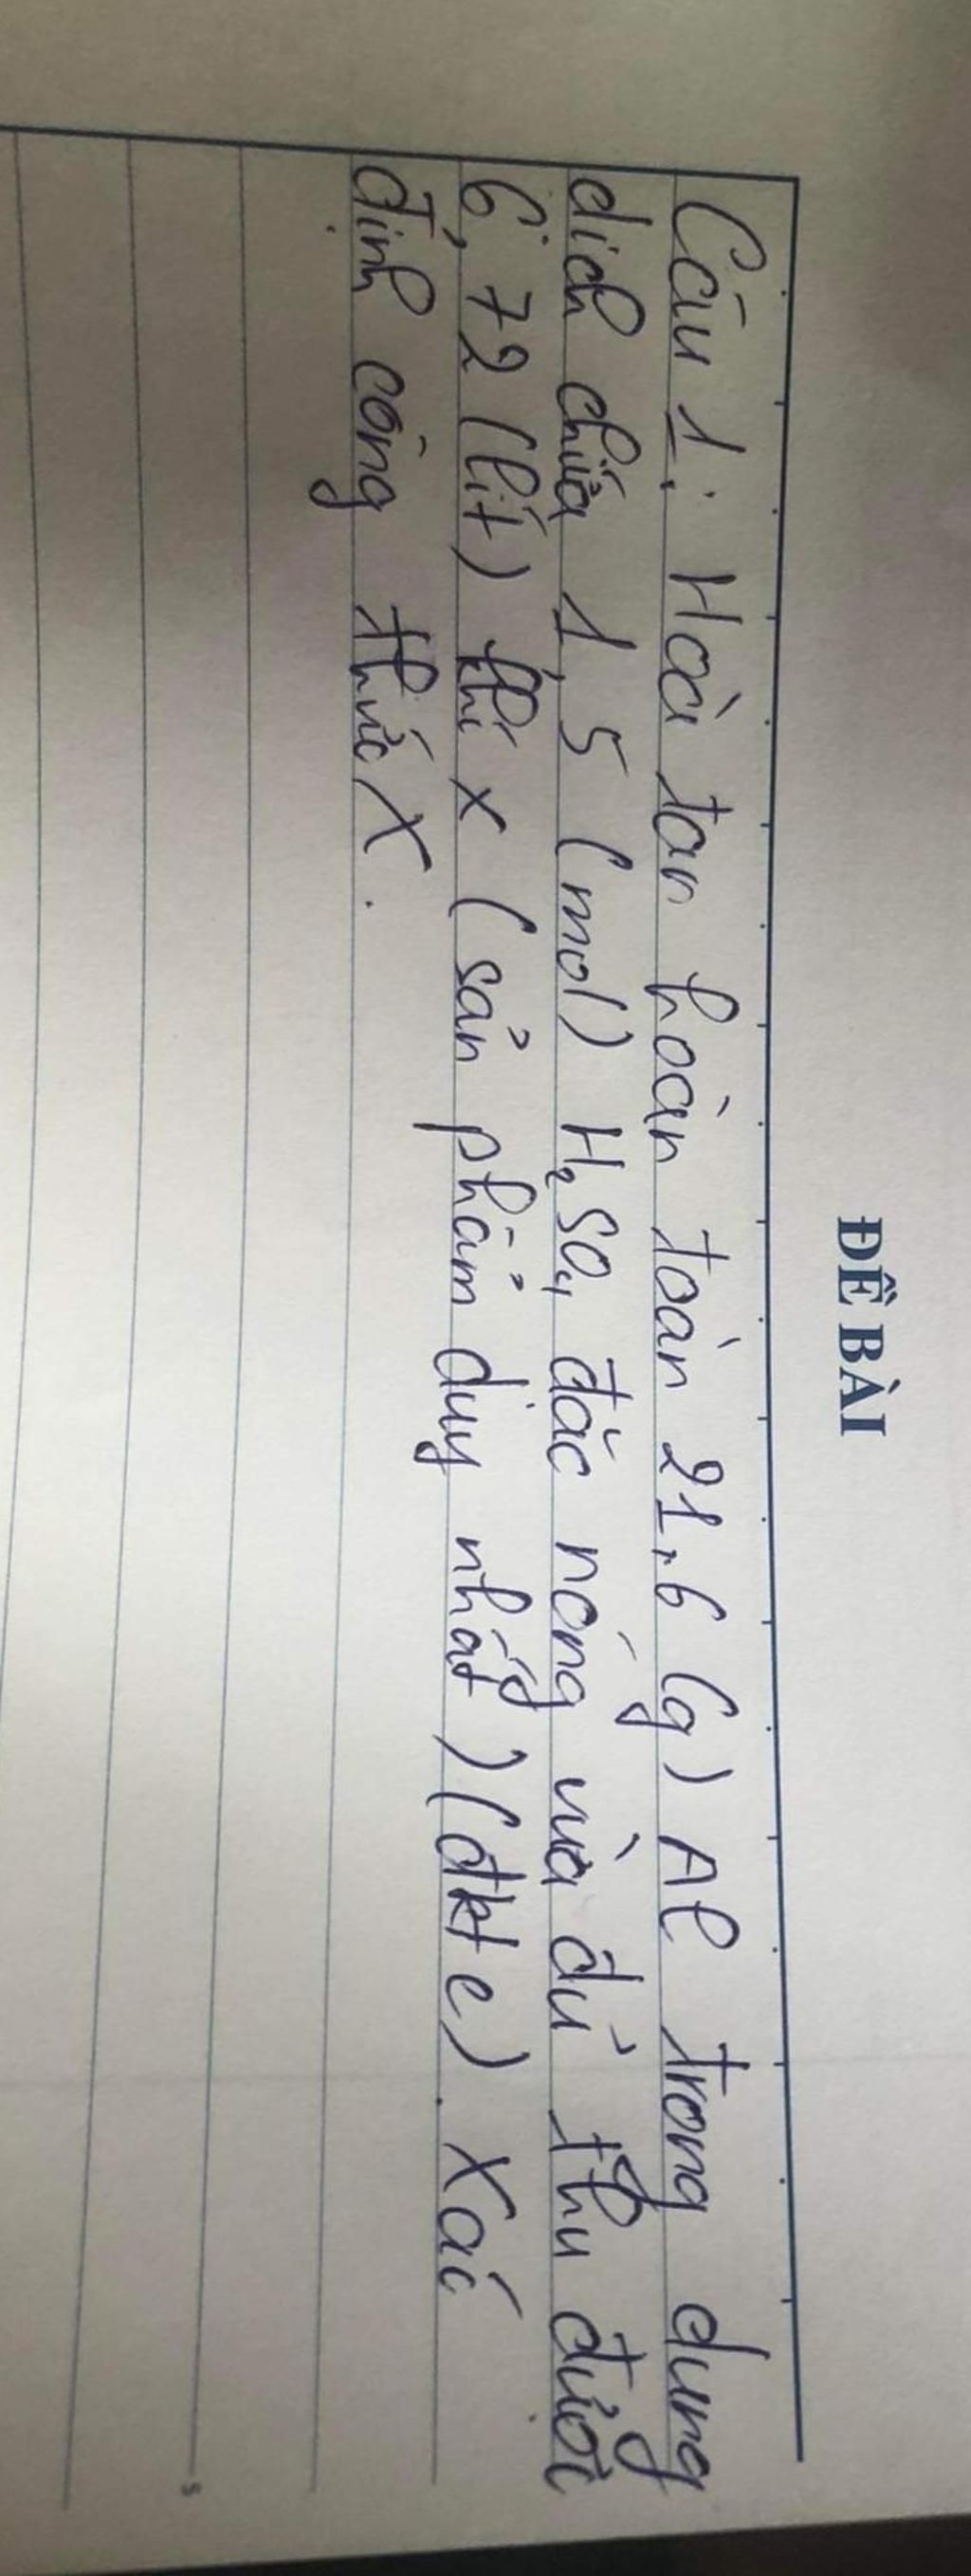 ĐỀ BÀI
Câu 1: Hoà tan hoàn toàn 21,6 (g) Al trong dung
dịch chứa 1,5 (mol) H₂SO₄ đặc nóng vừa đủ thu được
6,72 (lít) khí x (sản phẩm duy nhất) (đktc). Xác
định công thức X.
5